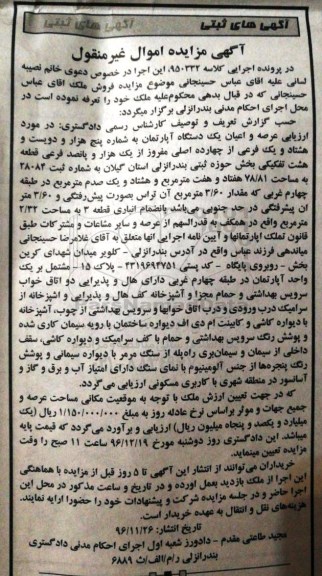 آگهی های ثبتی
آگهی های ثبتی
آگهی مزایده اموال غیرمنقول
در پرونده اجرایی کلاسه ۹۵۰۳۳۲، این اجرا در خصوص دعوی خانم نصیبه
لسانی علیه آقای عباس حسینجانی موضوع مزایده فروش ملک آقای عباس
حسینجانی که در قبال بدهی محکوم‌علیه ملک خود را تعرفه نموده است در
محل اجرای احکام مدنی بندرانزلی برگزار میگردد.
حسب گزارش تعریف و توصیف کارشناس رسمی دادگستری: در مورد
ارزیابی عرصه و اعیان یک دستگاه آپارتمان به شماره پنج هزار و دویست و
هشتاد و یک فرعی از چهارده اصلی مفروز از یک هزار و پانصد فرعی قطعه
هشت تفکیکی بخش حوزه ثبتی بندرانزلی استان گیلان به شماره ثبت ۲۸۰۸۲
به مساحت ۷۸/۸۱ هفتاد و هفت مترمربع و هشتاد و یک صدم مترمربع در طبقه
چهارم غربی که مقدار ۳/۶۰ مترمربع آن تراس بصورت پیش‌رفتگی و ۳/۶۰ متر
آن پیشرفتگی در حد جنوبی می‌باشد بانضمام انباری قطعه ۳ به مساحت ۲/۳۲
مترمربع واقع در همکف به قدرالسهم از عرصه و سایر مشاعات و مشترکات طبق
قانون تملک آپارتمانها و آیین نامه اجرایی آنها متعلق به آقای غلامرضا حسینجانی
میاندهی فرزند عباس واقع در آدرس بندرانزلی - کلویر میدان شهدای کرین
بخش - روبروی پایگاه - کد پستی ۴۳۱۹۶۹۳۷۵۱ - پلاک ۱۵ - مشتمل بر یک
واحد آپارتمان در طبقه چهارم غربی دارای هال و پذیرایی دو اتاق خواب
سرویس بهداشتی و حمام مجزا و آشپزخانه کف هال و پذیرایی و آشپزخانه از
سرامیک درب ورودی و درب اتاق خوابها و سرویس بهداشتی از چوب، آشپزخانه
با دیواره کاشی و کابینت ام دی اف دیواره ساختمان با رویه سیمان کاری شده
و پوشش رنگ سرویس بهداشتی و حمام با کف سرامیک و دیواره کاشی، سقف
داخلی از سیمان و سیمان‌بری راه‌پله از سنگ مرمر با دیواره سیمانی و پوشش
رنگ پنجره‌ها از جنس آلومینیوم با نمای سنگ دارای امتیاز آب و برق و گاز و
آسانسور در منطقه شهری با کاربری مسکونی ارزیابی می‌گردد.
که در جهت تعیین ارزش ملک با توجه به موقعیت مکانی مساحت عرصه و
جمیع جهات و موثر براساس نرخ عادله روز به مبلغ ۱/۱۵۰/۰۰۰/۰۰۰ ریال (یک
میلیارد و یکصد و پنجاه میلیون ریال) ارزیابی و برآورد می‌گردد که قیمت پایه
میباشد. این دادگستری روز دوشنبه مورخ ۹۶/۱۲/۱۹ ساعت ۱۱ صبح را وقت
مزایده تعیین مینماید.
خریداران می‌توانند از انتشار این آگهی تا ۵ روز قبل از مزایده با هماهنگی
این اجرا از ملک بازدید بعمل آورده و در تاریخ و ساعت مذکور در محل این
اجرا حاضر و در جلسه مزایده شرکت و پیشنهادات خود را حضورا ارایه نمایند.
هزینه‌های نقل و انتقال به عهده خریدار است.
تاریخ انتشار: ۹۶/۱۱/۲۶
مجید طاعتی مقدم - دادورز شعبه اول اجرای احکام مدنی دادگستری
بندرانزلی ر/م/الف/ث ۶۸۸۹